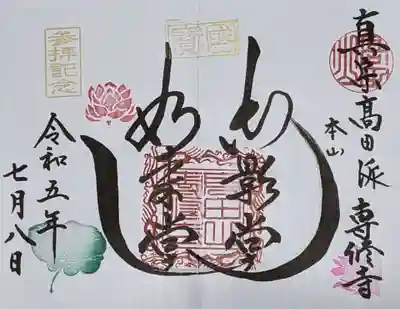 真宗高田派
本山
専修寺
國寶
御影堂
如来堂
參拝記念
令和五年
七月八日